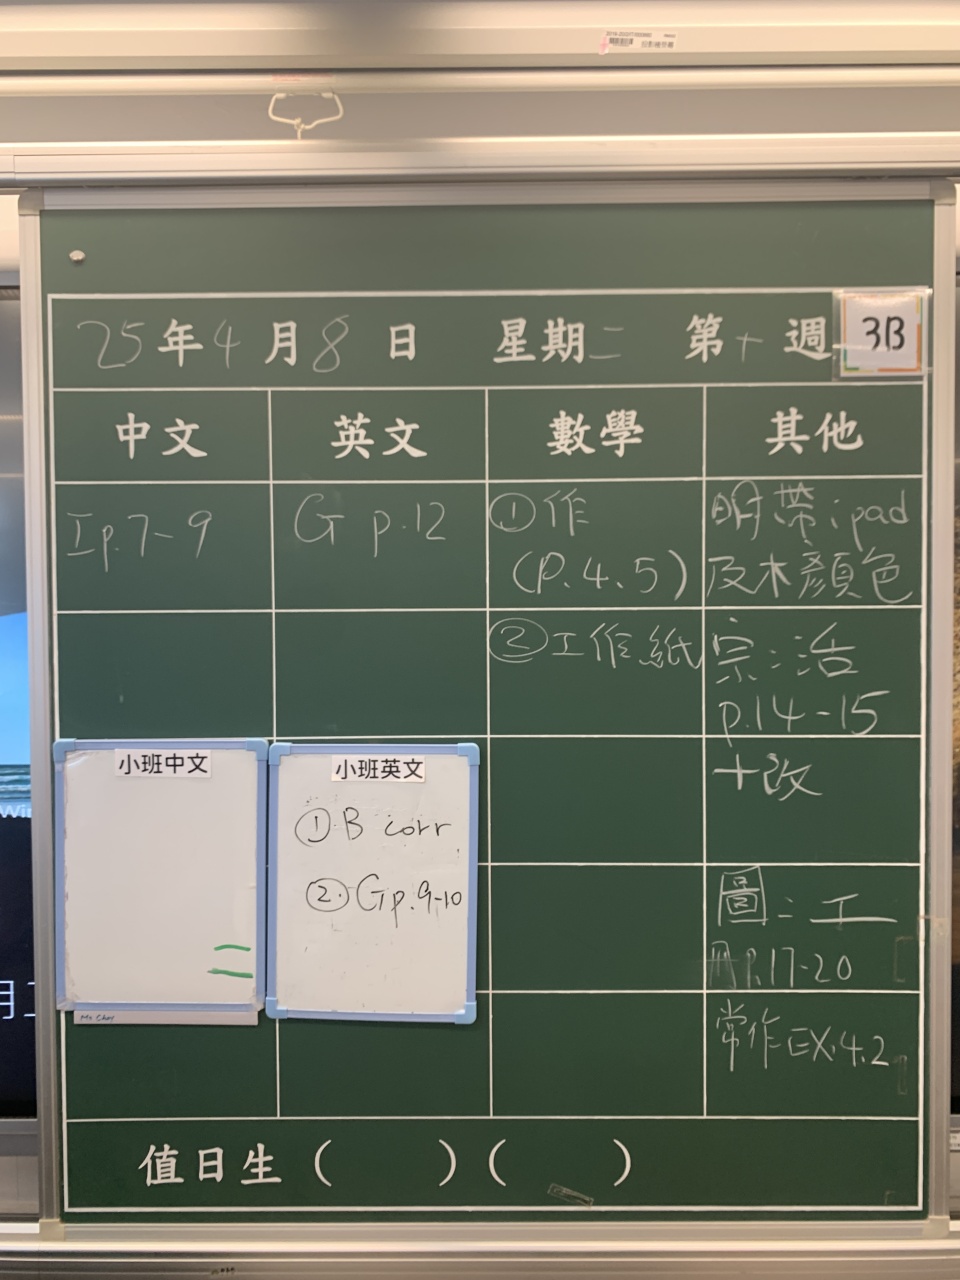 25年4月8日 星期二 第十週 3B
中文 英文 數學 其他
Ip.7-9
G p.12
①作
(P.4、5)
②工作紙
明帶ipad
及木顏色
宗：活
p.14-15
+改
圖：工
冊P.17-20
常作EX.4.2
小班中文
小班英文
① B corr
② Gp.9-10
值日生（ ）（ ）